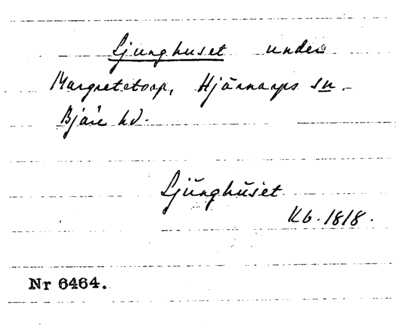 Ljunghuset under
Margretetorp, Hjärnarps sn.
Bjäre hd.
Ljunghuset
Kb. 1818.
Nr 6464.